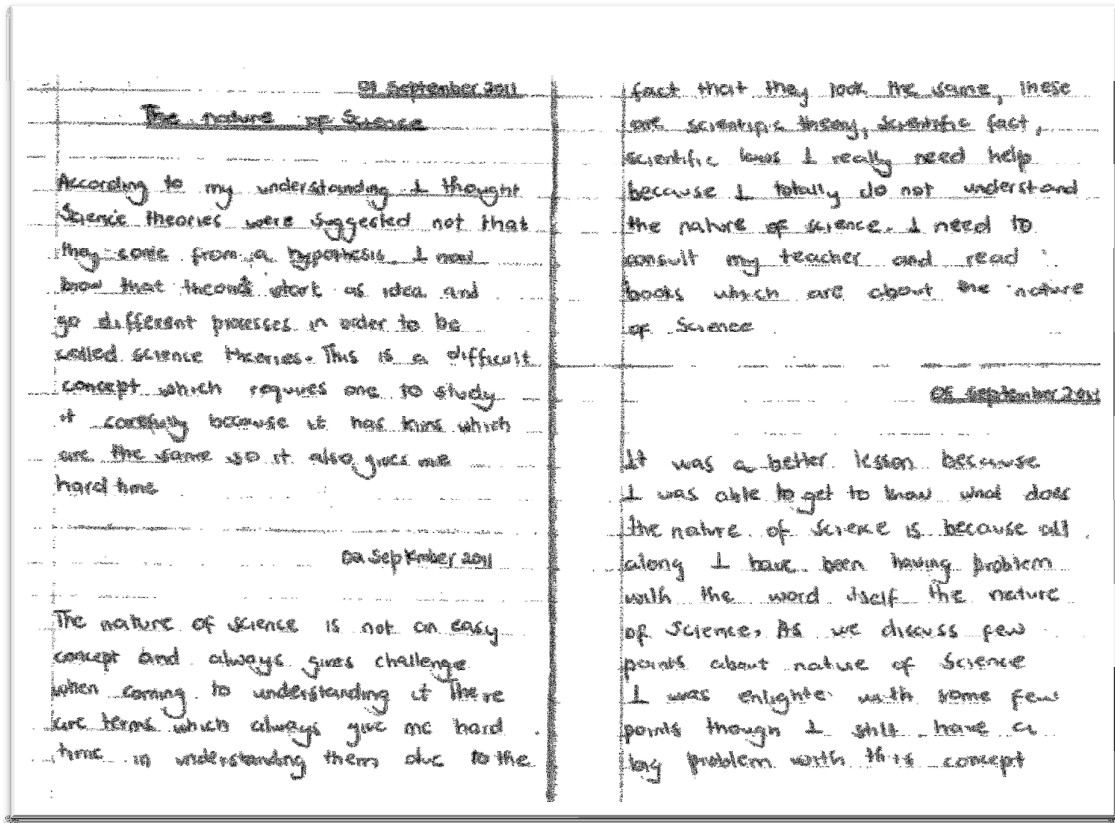 01 September 2011
The nature of Science
According to my understanding I thought
Science theories were suggested not that
they come from a hypothesis, I now
know that theories start as idea and
go different processes in order to be
called science theories. This is a difficult
concept which requires one to study
it carefully because it has kins which
are the same so it also gives me
hard time
02 September 2011
The nature of science is not an easy
concept and always gives challenge
when coming to understanding it There
are terms which always give me hard
time in understanding them due to the
fact that they look the same, these
are scientific theory, scientific fact,
scientific laws I really need help
because I totally do not understand
the nature of science. I need to
consult my teacher and read
books which are about the nature
of Science
05 September 2011
It was a better lesson because
I was able to get to know what does
the nature of science is because all
along I have been having problem
with the word itself the nature
of Science. As we discuss few
points about nature of Science
I was enlighte with some few
points though I still have a
big problem with this concept